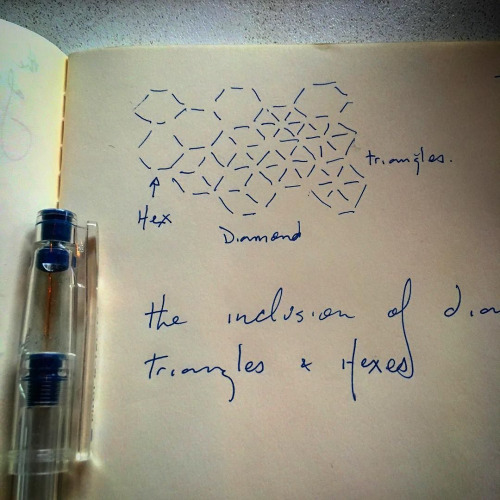 triangles.
Hex
Diamond
the inclusion of dia
triangles & Hexes